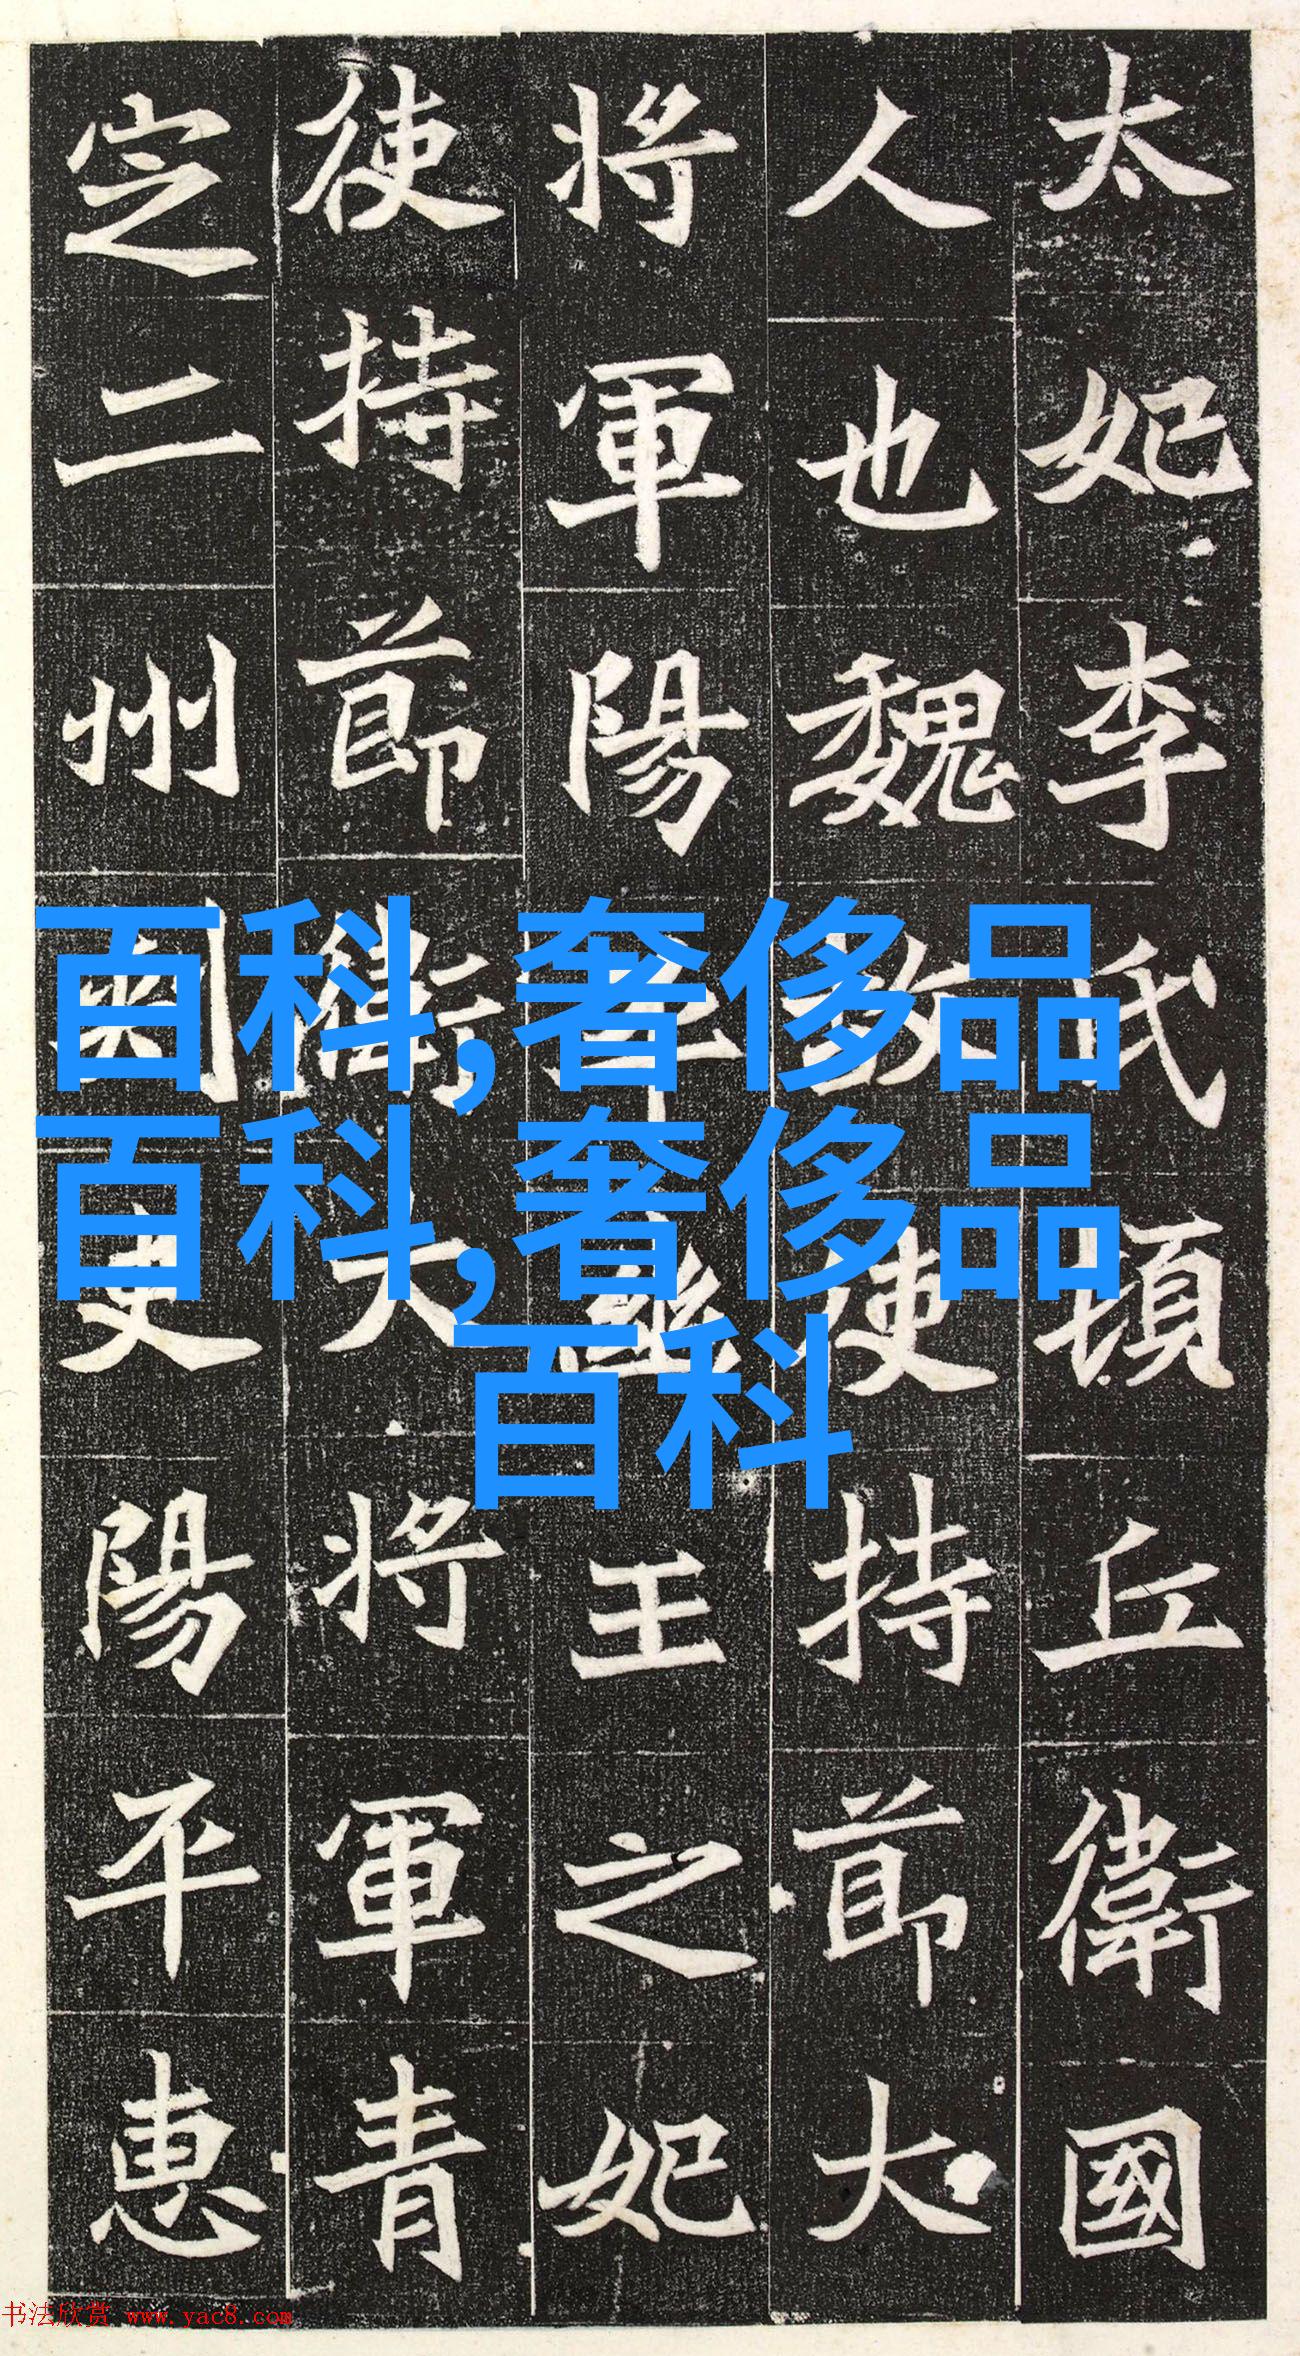 太妃李氏頓丘衛國
人也魏故使持節大
將軍陽平幽王之妃
使持節衛大將軍青
定二州刺史陽平惠
百科,奢侈品
百科,奢侈品
百科
书法欣赏 www.yac8.com